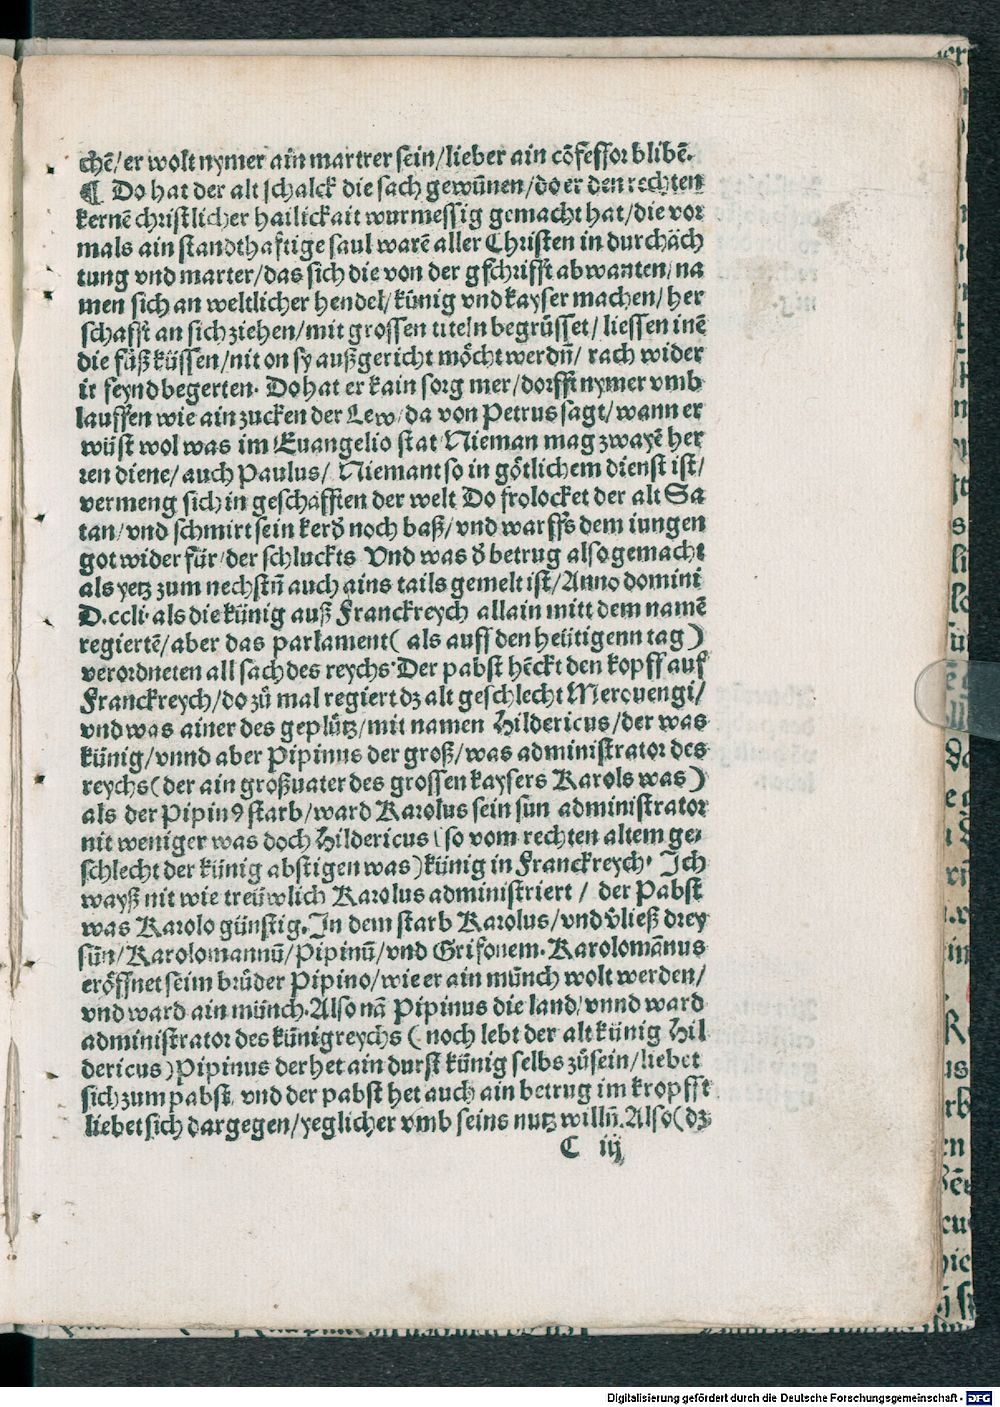 chē/er wolt nymer ain martrer sein/lieber ain cōfessor blibē.
¶ Do hat der alt schalck die sach gewūnen/do er den rechten
kernē christlicher hailickait wurmessig gemacht hat/die vor
mals ain standthaftige saul warē aller Christen in durchäch
tung vnd marter/das sich die von der gschrifft abwanten/na
men sich an weltlicher hendel/künig vnd kayser machen/her
schafft an sich ziehen/mit grossen titeln begrüsset/liessen inē
die füß küssen/nit on sy außgericht möcht werdn̄/rach wider
ir feynd begerten. Do hat er kain sorg mer/dorfft nymer vmb
lauffen wie ain zucken der Lew/da von Petrus sagt/wann er
wüst wol was im Euangelio stat/Nieman mag zwayē her
ren diene/auch Paulus/Niemant so in götlichem dienst ist/
vermeng sich in geschäfften der welt Do frolocket der alt Sa
tan/vnd schmirt sein kerd̄ noch baß/vnd warffs dem iungen
got wider für/der schluckts Vnd was d̄ betrug also gemacht
als yetz zum nechstn̄ auch ains tails gemelt ist/Anno domini
D.ccli. als die künig auß Franckreych allain mitt dem namē
regiertē/aber das parlament( als auff den heütigenn tag)
verordneten all sach des reychs. Der pabst hēckt den kopff auf
Franckreych/do zů mal regiert dz alt geschlecht Merouengi/
vnd was ainer des geplůtz/mit namen Hildericus/der was
künig/vnnd aber Pipinus der groß/was administrator des
reychs(der ain großuater des grossen kaysers Karols was)
als der Pipinꝰ starb/ward Karolus sein sun administrator
nit weniger was doch Hildericus (so vom rechten altem ge-
schlecht der künig abstigen was) künig in Franckreych. Ich
wayß nit wie treüwlich Karolus administriert/ der Pabst
was Karolo günstig. In dem starb Karolus/vnd v̄ließ drey
sün/Karolomannū/Pipinū/vnd Grifonem. Karolomānus
eröffnet seim brůder Pipino/wie er ain münch wolt werden/
vnd ward ain münch. Also nā Pipinus die land/vnnd ward
administrator des künigreychs ( noch lebt der alt künig Hil
dericus) Pipinus der het ain durst künig selbs zůsein/liebet
sich zum pabst, vnd der pabst het auch ain betrug im kropff
liebet sich dargegen/yeglicher vmb seins nutz willn̄. Also(dz
C iij
Digitalisierung gefördert durch die Deutsche Forschungsgemeinschaft - DFG